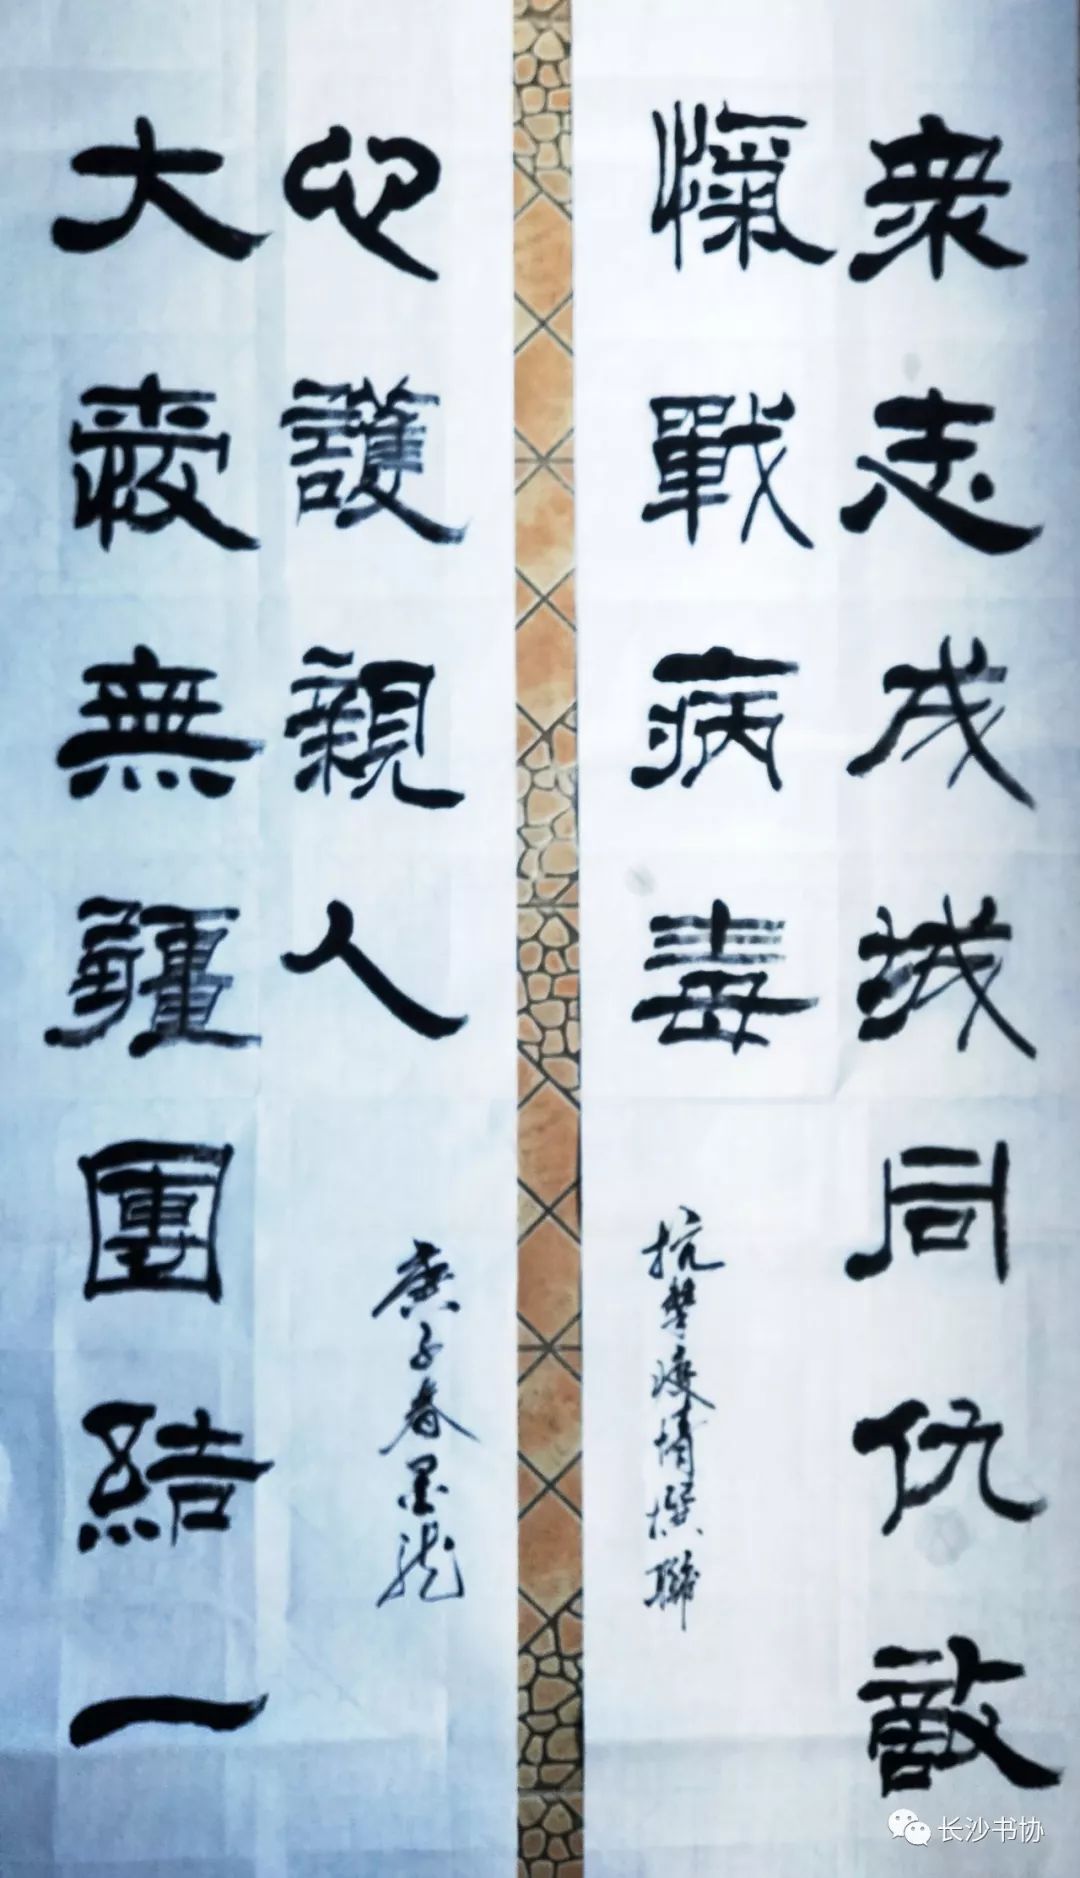 衆志成城同仇敵
愾戰病毒
抗擊疫情撰聯
大愛無疆團結一
心護親人
庚子春墨龍
长沙书协